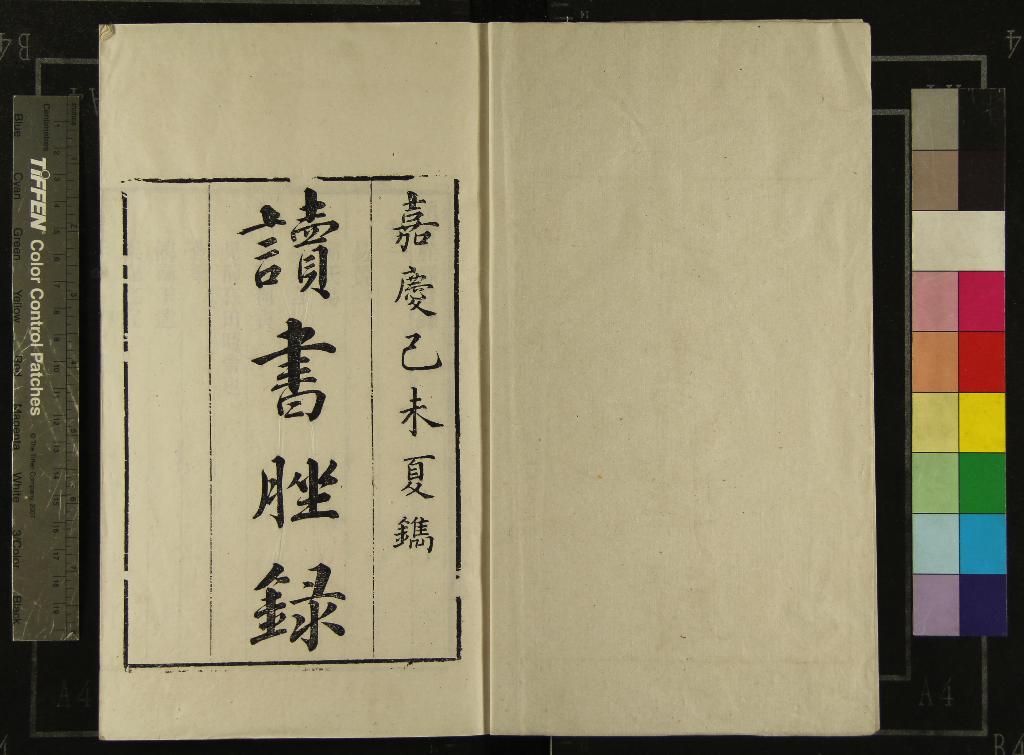 嘉慶己未夏鐫
讀書脞録
TIFFEN Color Control Patches
© The Tiffen Company, 2007
Centimetres
Blue
Cyan
Green
Yellow
Red
Magenta
White
3/Color
Black
B4
A4
A4